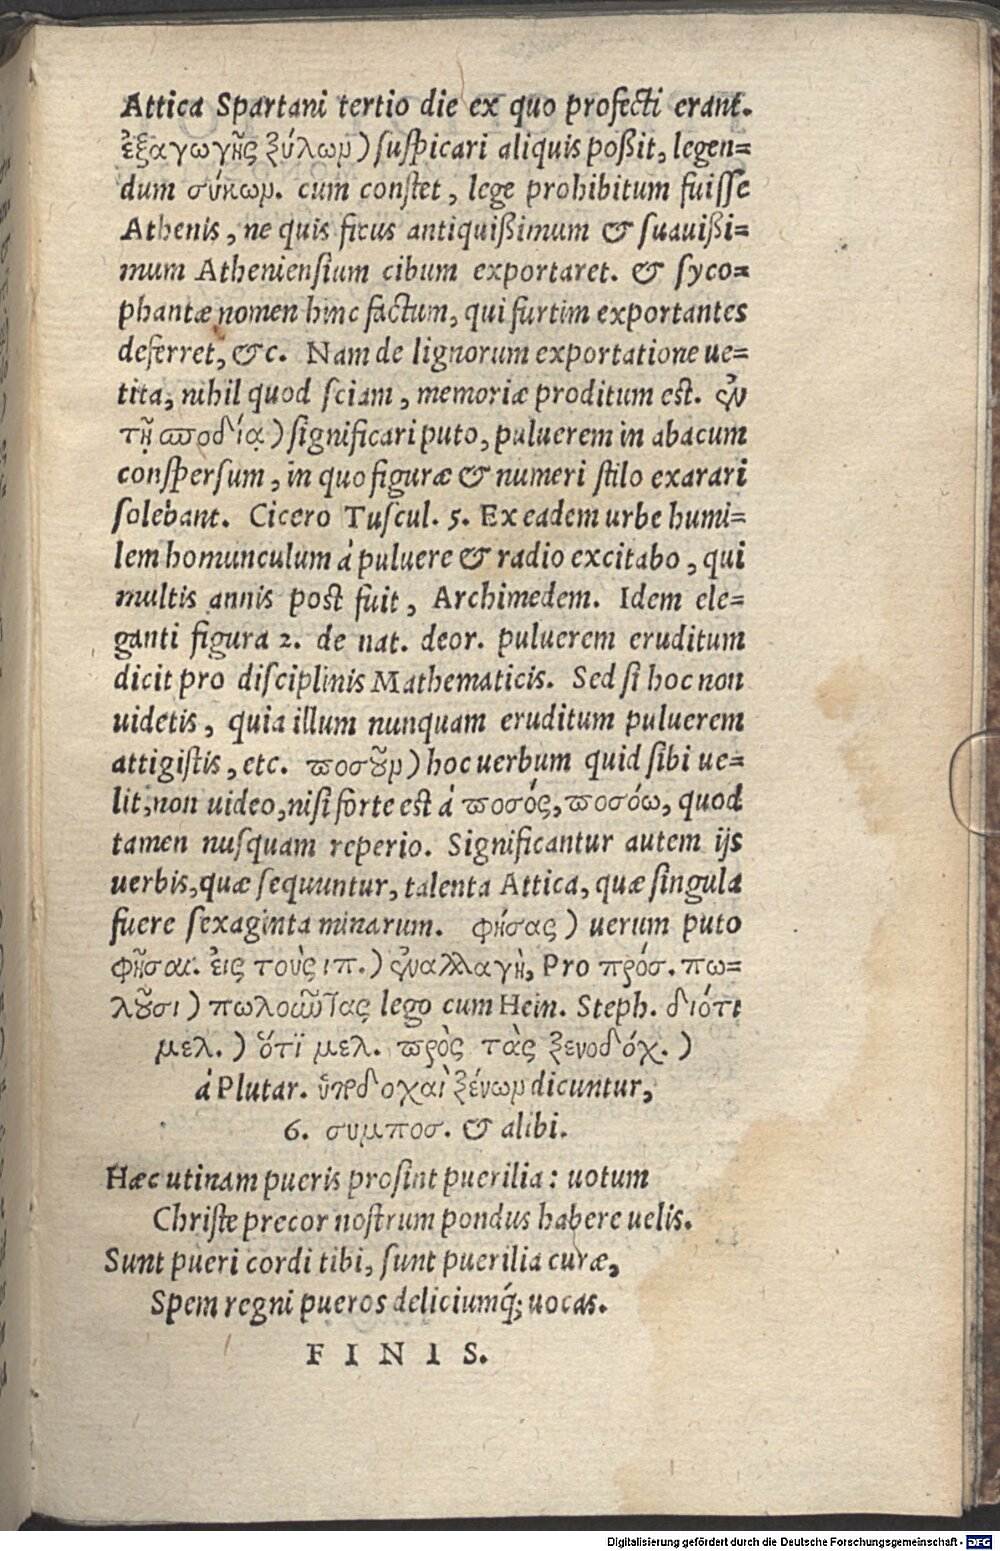 Attica Spartani tertio die ex quo profecti erant.
ἐξαγωγῆς ξύλωμ) suspicari aliquis poßit, legen=
dum σύκωμ. cum constet, lege prohibitum fuisse
Athenis, ne quis ficus antiquißimum & suauißi=
mum Atheniensium cibum exportaret. & syco=
phantæ nomen hinc factum, qui furtim exportantes
deferret, &c. Nam de lignorum exportatione ue=
tita, nihil quod sciam, memoriæ proditum est. ἐν
τῇ ϖοδίᾳ) significari puto, puluerem in abacum
conspersum, in quo figuræ & numeri stilo exarari
solebant. Cicero Tuscul. 5. Ex eadem urbe humi=
lem homunculum à puluere & radio excitabo, qui
multis annis post fuit, Archimedem. Idem ele=
ganti figura 2. de nat. deor. puluerem eruditum
dicit pro disciplinis Mathematicis. Sed si hoc non
uidetis, quia illum nunquam eruditum puluerem
attigistis, etc. ϖοσοῦμ) hoc uerbum quid sibi ue=
lit, non uideo, nisi forte est á ϖοσός, ϖοσόω, quod
tamen nusquam reperio. Significantur autem ijs
uerbis, quæ sequuntur, talenta Attica, quæ singula
fuere sexaginta minarum. φήσας) uerum puto
φῆσαι. εἰς τοὺς ιπ.) ἐναλλαγὴ, Pro πρός. πω=
λοῦσι) πωλο lego cum Hein. Steph. διότι
μελ.) ὅτϊ μελ. ϖρὸς τὰς ξενοδόχ.)
á Plutar. ὑποδοχαὶ ξένωμ dicuntur,
6. συμποσ. & alibi.
Hæc utinam pueris prosint puerilia: uotum
Christe precor nostrum pondus habere uelis.
Sunt pueri cordi tibi, sunt puerilia curæ,
Spem regni pueros deliciumq́; uocas.
FINIS.
Digitalisierung gefördert durch die Deutsche Forschungsgemeinschaft - DFG